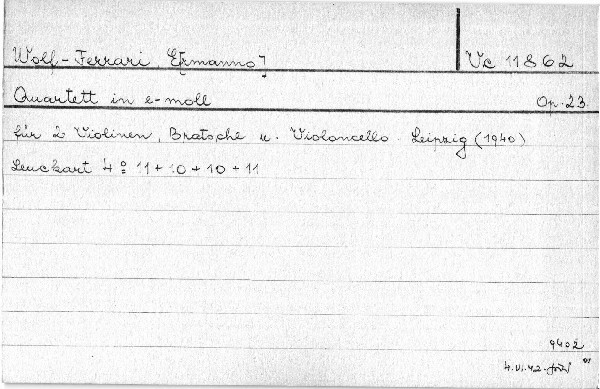 Wolf-Ferrari, E[rmanno] Vc 11862
Quartett in e-moll Op. 23.
für 2 Violinen, Bratsche u. Violoncello. Leipzig (1940)
Leuckart 4º 11 + 10 + 10 + 11
9402
4.VI.42.